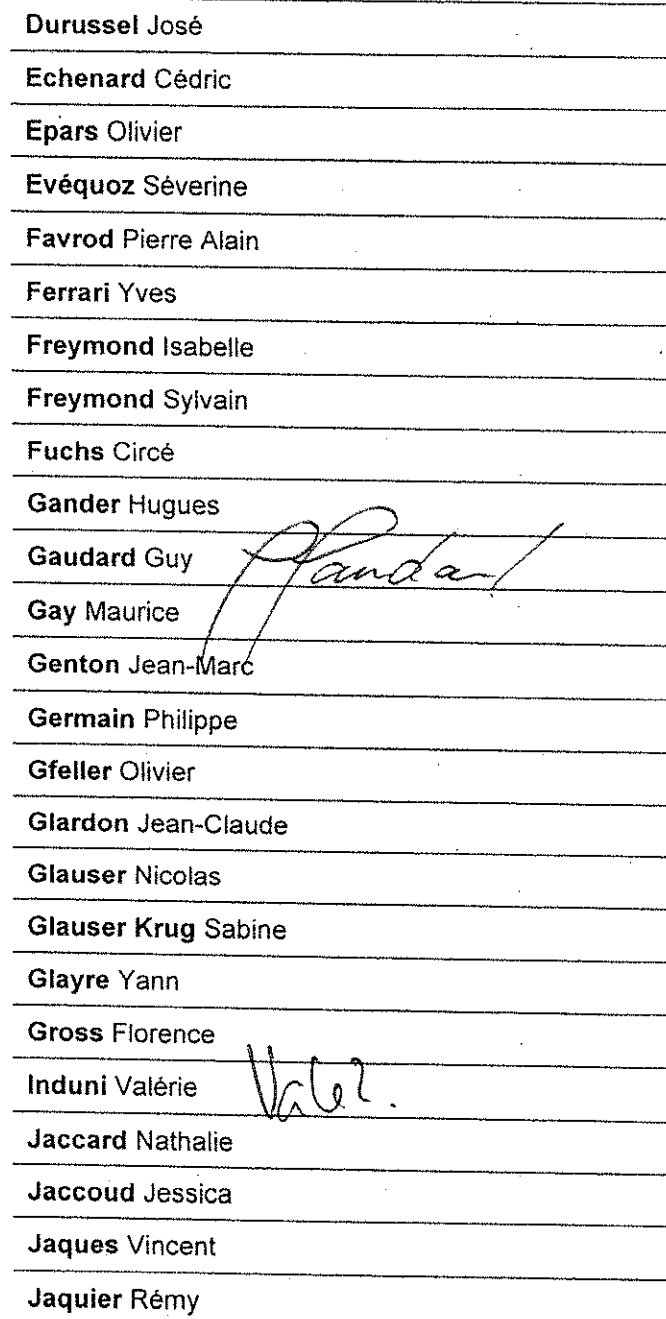 Durussel José
Echenard Cédric
Epars Olivier
Evéquoz Séverine
Favrod Pierre Alain
Ferrari Yves
Freymond Isabelle
Freymond Sylvain
Fuchs Circé
Gander Hugues
Gaudard Guy Gaudard
Gay Maurice
Genton Jean-Marc
Germain Philippe
Gfeller Olivier
Glardon Jean-Claude
Glauser Nicolas
Glauser Krug Sabine
Glayre Yann
Gross Florence
Induni Valérie
Jaccard Nathalie
Jaccoud Jessica
Jaques Vincent
Jaquier Rémy